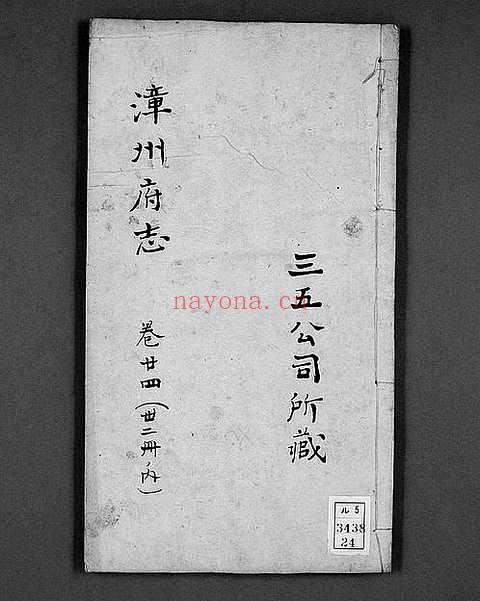 漳州府志
卷廿四（卌二冊ノ內）
三五公司所藏
nayona.cn
ル5
3438
24